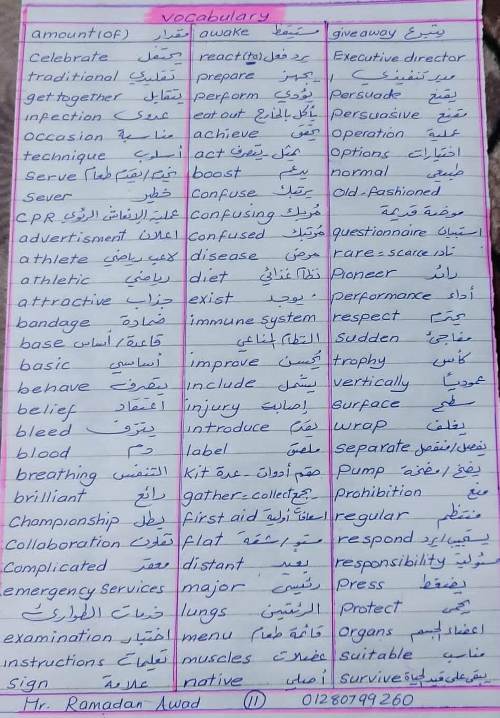 vocabulary
amount (of) مقدار awake مستيقظ give away يتبرع
celebrate يحتفل react (to) يرد فعل Executive director
traditional تقليدي prepare يجهز مدير تنفيذي
get together يتقابل perform يؤدي Persuade يقنع
infection عدوى eat out يأكل بالخارج Persuasive مقنع
occasion مناسبة achieve يحقق operation عملية
technique أسلوب act يمثل - يتصرف options اختيارات
serve يخدم / يقدم طعام boost يدعم normal طبيعى
sever خطير confuse يربك old-fashioned
CPR عملية الإنعاش الرئوى confusing مُربك موضة قديمة
advertisment اعلان confused مُرتبك questionnaire استبيان
athlete لاعب رياضي disease مرض rare = scarce نادر
athletic رياضي diet نظام غذائي Pioneer رائد
attractive جذاب exist يوجد Performance أداء
bandage ضمادة immune system respect يحترم
base قاعدة / أساس النظام المناعي Sudden مفاجئ
basic أساسي improve يحسن trophy كأس
behave يتصرف include يشمل vertically عموديًا
belief اعتقاد injury إصابة surface سطح
bleed ينزف introduce يقدم wrap يغلف
blood دم label ملصق separate يفصل / منفصل
breathing التنفس kit طقم أدوات - عدة Pump يضخ / مضخة
brilliant رائع gather = collect يجمع Prohibition منع
championship بطولة first aid اسعافات أولية regular منتظم
collaboration تعاون flat مستو / شقة respond يستجيب / يرد
complicated معقد distant بعيد responsibility مسئولية
emergency services major رئيسي Press يضغط
خدمات الطوارئ lungs الرئتين Protect يحمى
examination اختبار menu قائمة طعام organs اعضاء الجسم
instructions تعليمات muscles عضلات suitable مناسب
sign علامة native أصلي survive يبقى على قيد الحياة
Mr. Ramadan Awad 11 01280799260